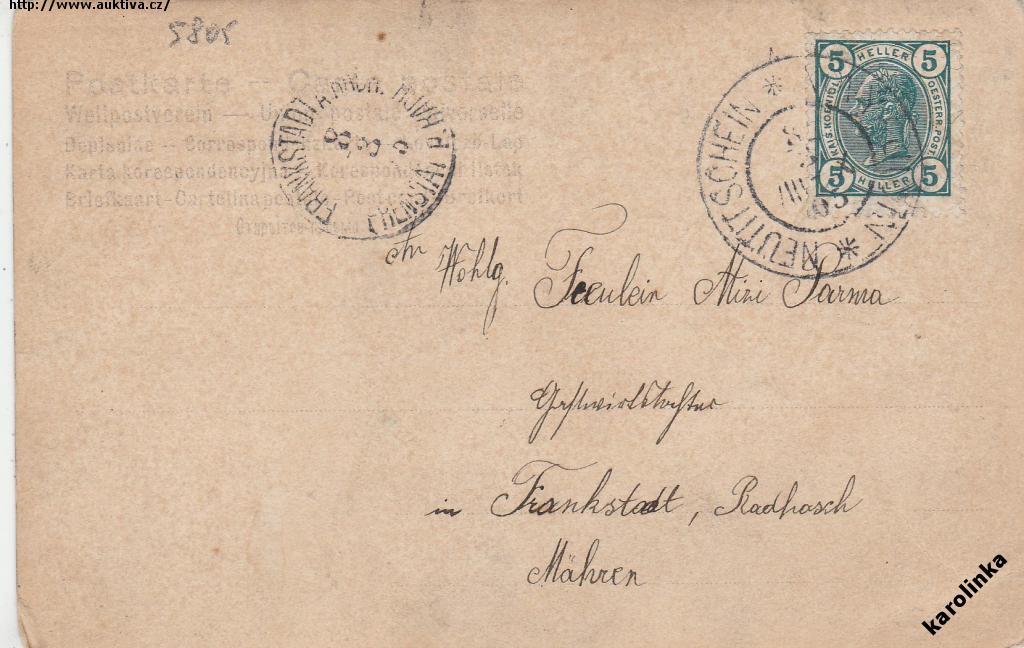 http://www.auktiva.cz/
5805
Postkarte — Carte postale
Weltpostverein — Union postale universelle
Dopisnice — Correspondenzkarte — Levelező-Lap
Karta korespondencyjna — Korespondenční lístek
Briefkaart - Cartolina postale - Post card - Brefkort
FRANKSTADT A. RADH.
FRENŠTÁT P. RADH.
NEUTITSCHEIN
5 HELLER 5
KAIS. KOENIGL. OESTERR. POST
5 HELLER 5
An Wohlg. Freulein Mizi Parma
Gastwirtstochter
in Frankstadt, Radhosch
Mähren
karolinka